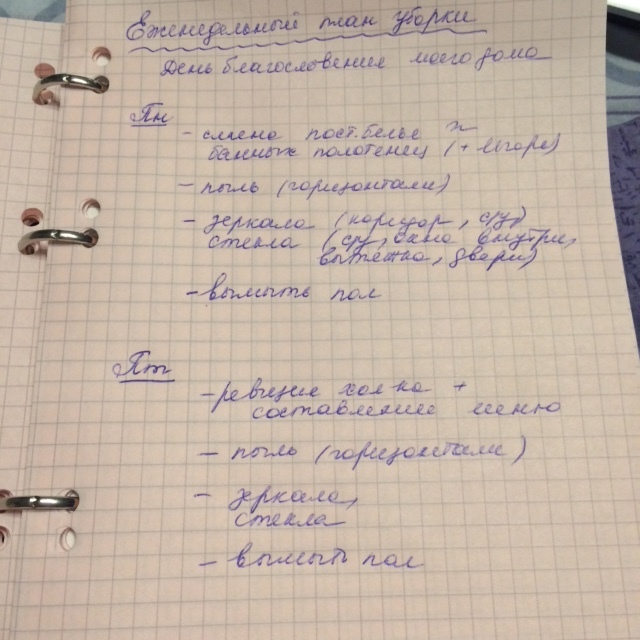 Еженедельный план уборки
День благословение моего дома
Пн
- смена пост. белья и
банных полотенец (+ вверх)
- пыль (горизонтали)
- зеркала (коридор, с/у)
стекла (с/у, окна внутри,
вытяжка, двери)
- вымыть пол
Пт
- ревизия хол-ка +
составление меню
- пыль (горизонтали)
- зеркала,
стекла
- вымыть пол